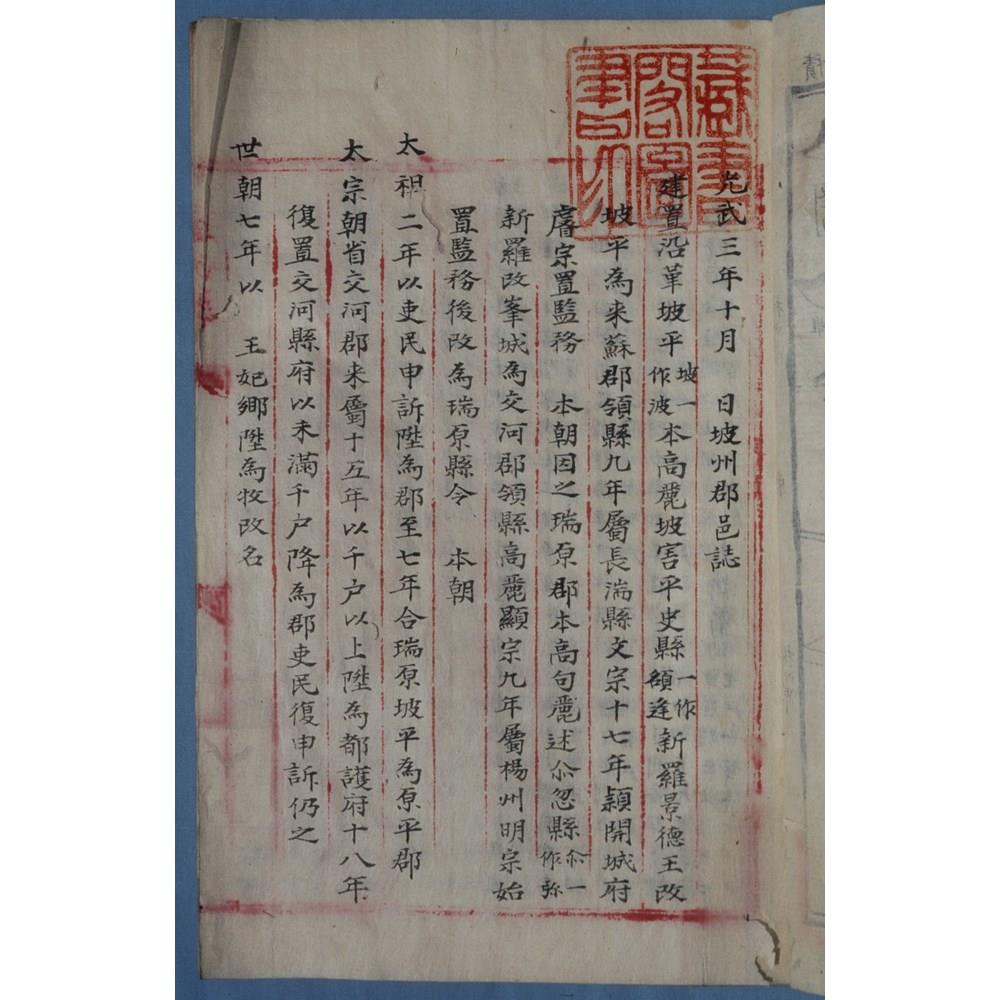 藏書閣圖書印
光武三年十月　日坡州郡邑誌
建置沿革坡平坡一作波本高麗坡害平史縣一作額逢新羅景德王改
坡平為来蘇郡領縣九年屬長湍縣文宗十七年穎開城府
睿宗置監務　本朝因之瑞原郡本高句麗述尒忽縣尒一作弥
新羅改峯城為交河郡領縣高麗顯宗九年屬楊州明宗始
置監務後改為瑞原縣令　本朝
太祖二年以吏民申訴陞為郡至七年合瑞原坡平為原平郡
太宗朝省交河郡来屬十五年以千户以上陞為都護府十八年
復置交河縣府以未滿千户降為郡吏民復申訴仍之
世朝七年以　王妃鄉陞為牧改名